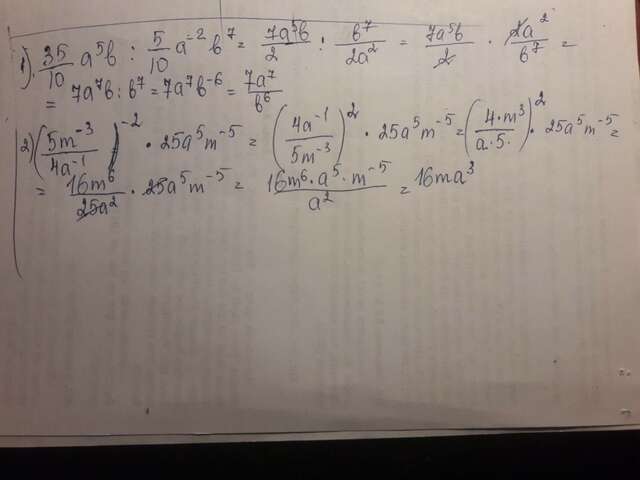 1) 35/10 a⁵b : 5/10 a⁻²b⁷ = 7a⁵b/2 : b⁷/2a² = 7a⁵b/2 · 2a²/b⁷ =
= 7a⁷b : b⁷ = 7a⁷b⁻⁶ = 7a⁷/b⁶
2) (5m⁻³/4a⁻¹)⁻² · 25a⁵m⁻⁵ = (4a⁻¹/5m⁻³)² · 25a⁵m⁻⁵ = (4·m³/a·5·)² · 25a⁵m⁻⁵ =
= 16m⁶/25a² · 25a⁵m⁻⁵ = 16m⁶·a⁵·m⁻⁵/a² = 16ma³